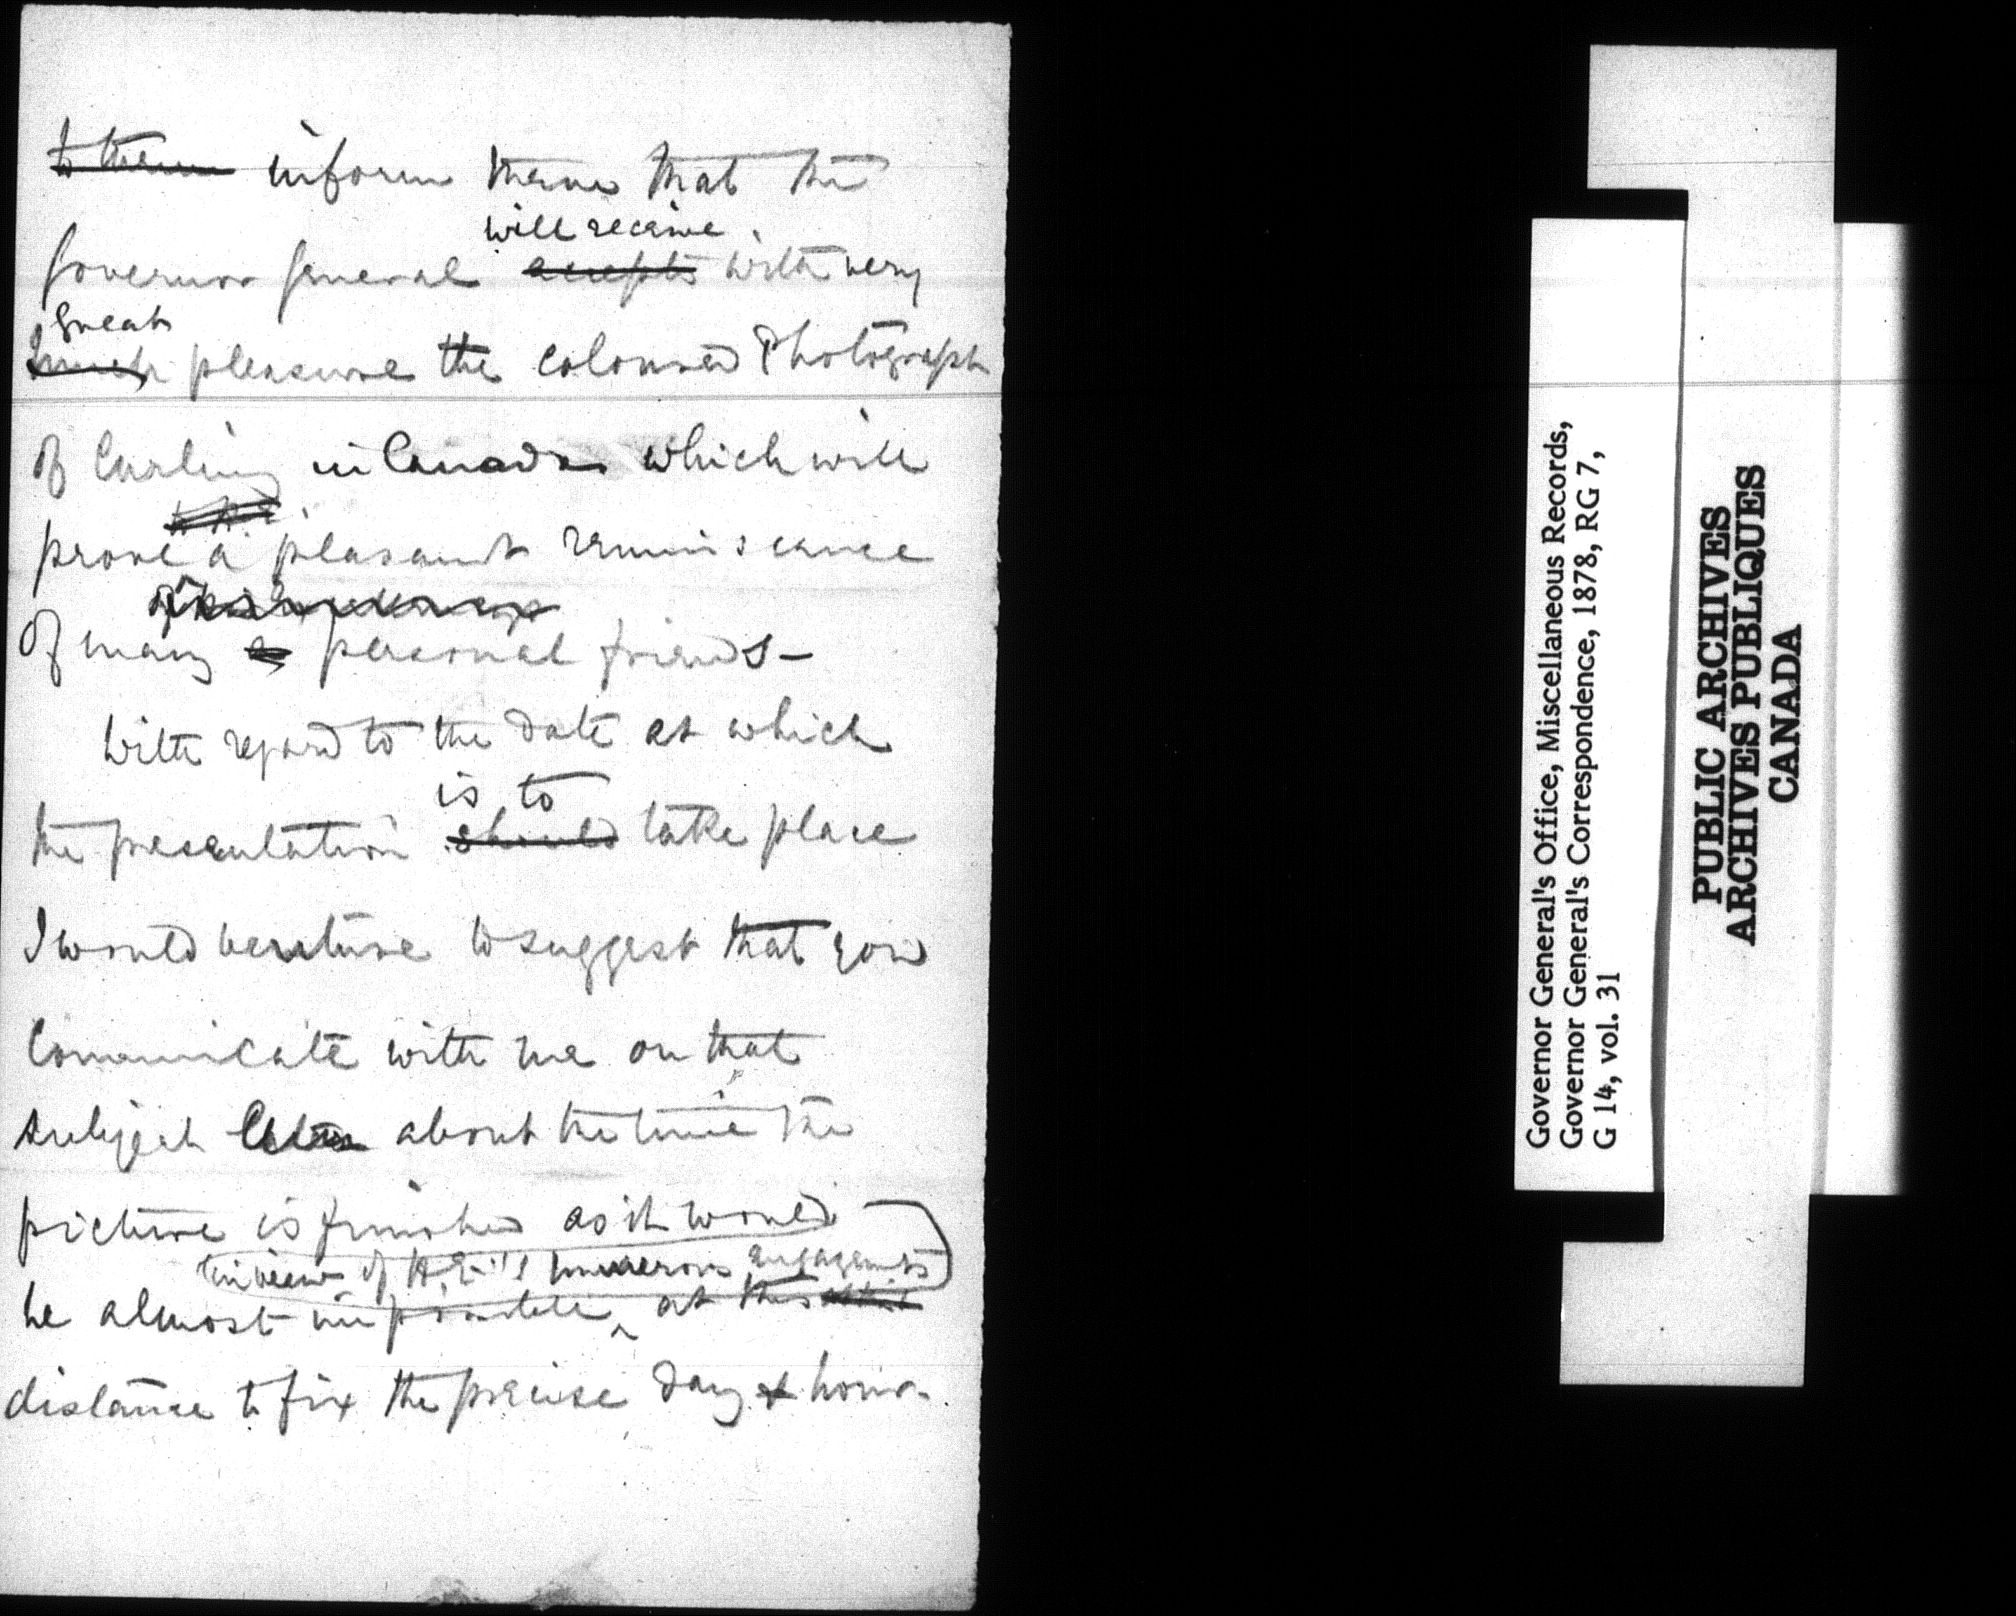 to them inform them that the
will receive
Governor General accepts with very
great
much pleasure the coloured Photograph
of Curling in Canada which will
prove a pleasant reminiscence
of many personal friends -
With regard to the date at which
is to
the presentation should take place
I would venture to suggest that you
Communicate with me on that
subject about the time the
picture is finished as it would
in view of H.E.'s numerous engagements
be almost impossible ^ at this
distance to fix the precise day & hour.
Governor General's Office, Miscellaneous Records,
Governor General's Correspondence, 1878, RG 7,
G 14, vol. 31
PUBLIC ARCHIVES
ARCHIVES PUBLIQUES
CANADA